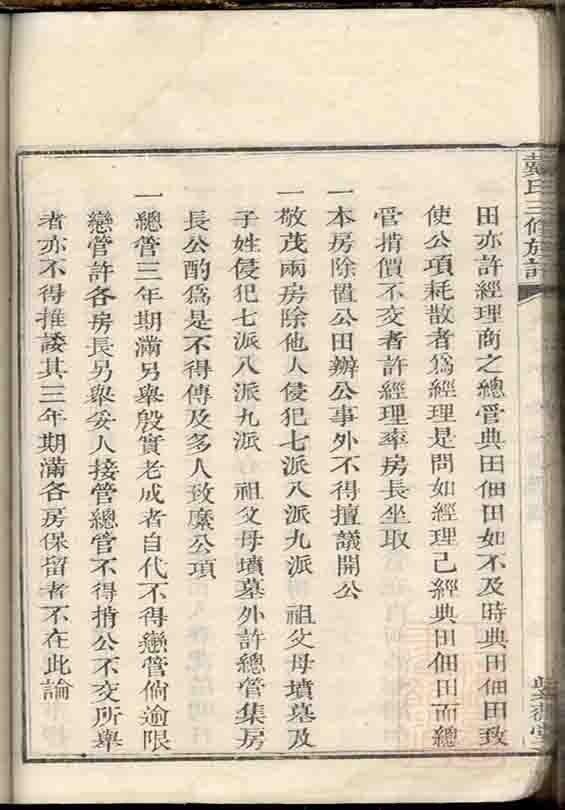 戴氏三修族譜
田亦許經理商之總管典田佃田如不及時典田佃田致
使公項耗散者爲經理是問如經理已經典田佃田而總
管掯價不交者許經理率房長坐取
一本房除置公田辦公事外不得擅議開公
一敬茂兩房除他人侵犯七派八派九派 祖父母墳墓及
子姓侵犯七派八派九派 祖父母墳墓外許總管集房
長公酌爲是不得傳及多人致縻公項
一總管三年期滿另舉殷實老成者自代不得戀管倘逾限
戀管許各房長另舉妥人接管總管不得掯公不交所舉
者亦不得推諉其三年期滿各房保留者不在此論